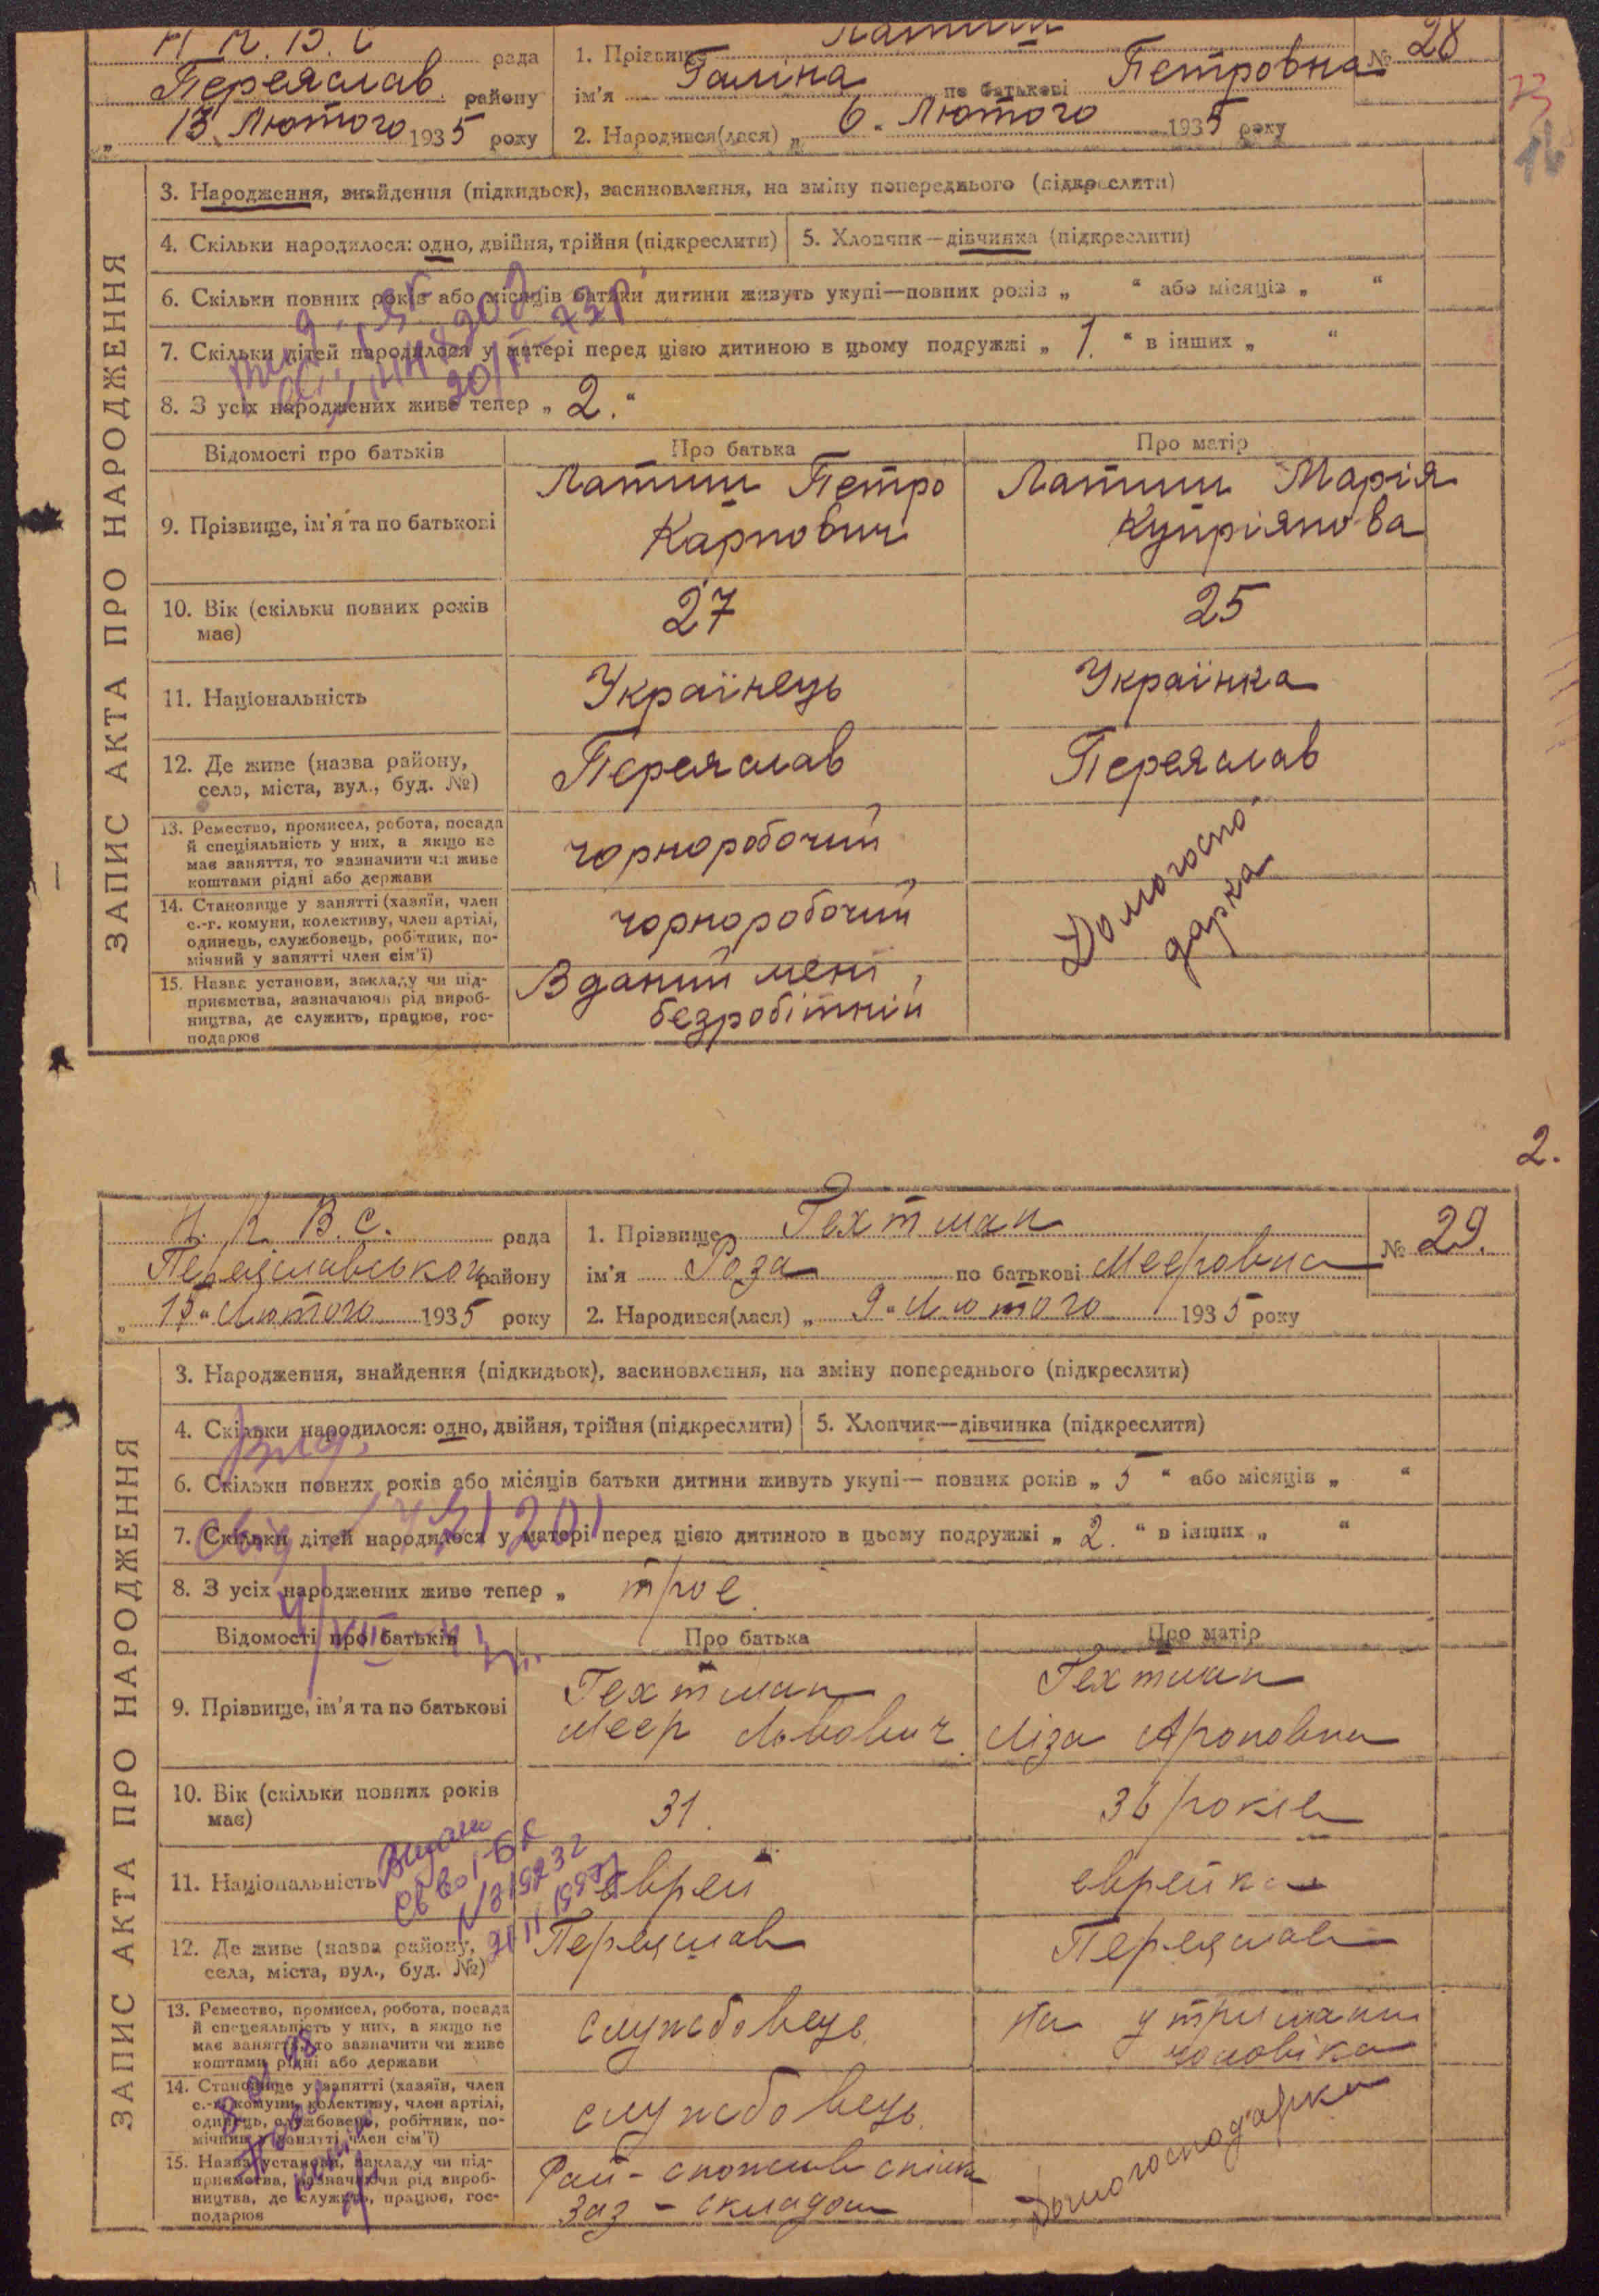 Н. К. В. С рада
Переяслав району
„ 13. Лютого 1935 року
1. Прізвище Латиш
ім'я Галіна по батькові Петровна
2. Народився(лася) „ 6. Лютого 1935 року
№ 28
ЗАПИС АКТА ПРО НАРОДЖЕННЯ
3. Народження, знайдення (підкидьок), засиновлення, на зміну попереднього (підкреслити)
4. Скільки народилося: одно, двійня, трійня (підкреслити)
5. Хлопчик—дівчинка (підкреслити)
6. Скільки повних років або місяців батьки дитини живуть укупі—повних років „ “ або місяців „ “
7. Скільки дітей народилося у матері перед цією дитиною в цьому подружжі „ 1. “ в інших „ “
8. З усіх народжених живе тепер „ 2. “
Відомості про батьків
Про батька
Про матір
9. Прізвище, ім'я та по батькові
Латиш Петро
Карпович
Латиш Марія
Купріянова
10. Вік (скільки повних років
має)
27
25
11. Національність
Українець
Українка
12. Де живе (назва району,
села, міста, вул., буд. №)
Переяслав
Переяслав
13. Ремество, промисел, робота, посада
й спеціяльність у них, а якщо не
має заняття, то зазначити чи живе
коштами рідні або держави
чорноробочий
Домогоспо-
дарка
14. Становище у занятті (хазяїн, член
с.-г. комуни, колективу, член артілі,
одинець, службовець, робітник, по-
мічний у занятті член сім'ї)
чорноробочий
15. Назва установи, закладу чи під-
приємства, зазначаючи рід вироб-
ництва, де служить, працює, гос-
подарює
В даний мент
безробітній
2.
Н. К. В. С. рада
Переяславського району
„ 15 “ Лютого 1935 року
1. Прізвище Гехтман
ім'я Роза по батькові Мееровна
2. Народився(лася) „ 9 “ Лютого 1935 року
№ 29.
ЗАПИС АКТА ПРО НАРОДЖЕННЯ
3. Народження, знайдення (підкидьок), засиновлення, на зміну попереднього (підкреслити)
4. Скільки народилося: одно, двійня, трійня (підкреслити)
5. Хлопчик—дівчинка (підкреслити)
6. Скільки повних років або місяців батьки дитини живуть укупі— повних років „ 5 “ або місяців „ “
7. Скільки дітей народилося у матері перед цією дитиною в цьому подружжі „ 2. “ в інших „ “
8. З усіх народжених живе тепер „ троє.
Відомості про батьків
Про батька
Про матір
9. Прізвище, ім'я та по батькові
Гехтман
Меер Львович.
Гехтман
Ліза Ароновна
10. Вік (скільки повних років
має)
31.
36 років
11. Національність
єврей
єврейка
12. Де живе (назва району,
села, міста, вул., буд. №)
Переяслав
Переяслав
13. Ремество, промисел, робота, посада
й спецеяльність у них, а якщо не
має заняття, то зазначити чи живе
коштами рідні або держави
службовець
На утриманні
чоловіка
14. Становище у занятті (хазяїн, член
с.-г. комуни, колективу, член артілі,
одинець, службовець, робітник, по-
мічний у занятті член сім'ї)
службовець
Домогосподарка
15. Назва установи, закладу чи під-
приємства, зазначаючи рід вироб-
ництва, де служить, працює, гос-
подарює
Рай-спожив спілка
Зав-складом